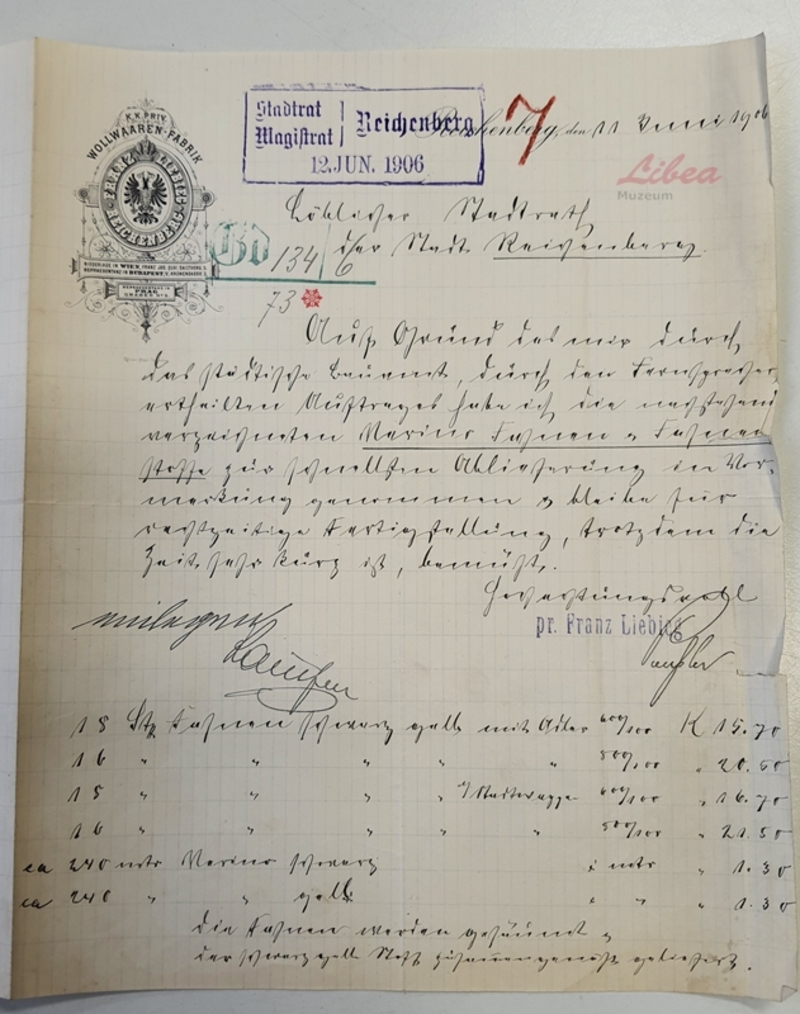 K.K. PRIV.
WOLLWAAREN-FABRIK
FRANZ LIEBIEG
REICHENBERG
NIEDERLAGE IN WIEN, FRANZ JOS. QUAI
REPRAESENTANZ IN BUDAPEST, V.
REPRAESENTANZ IN
PRAG
Stadtrat
Magistrat
Reichenberg
12. JUN. 1906
7
Reichenberg, den 11 Juni 1906
Libea
Muzeum
Löblicher Stadtrath
der Stadt Reichenberg.
134/6
73
Auf Grund des mir durch
das städtische Bauamt, durch den Fernsprecher
ertheilten Auftrages habe ich die nachstehend
verzeichneten Marino Fahnen & Fahnen
stoffe zur schnellsten Ablieferung in Vor-
merkung genommen & bleibe für
rechtzeitige Fertigstellung, trotzdem die
Zeit sehr kurz ist, bemüht.
Hochachtungsvoll
pr. Franz Liebieg
15 Stk Fahnen schwarz gelb mit Adler 600/100 K 15.70
16 " " " " " 800/100 " 20.50
15 " " " " Stadtwappen 600/100 " 16.70
16 " " " " " 800/100 " 21.50
ca 240 mtr Marino schwarz mtr " 1.30
ca 240 " " gelb " " 1.30
die Fahnen werden gesäumt &
der schwarz gelbe Stoff zusammengenäht geliefert.